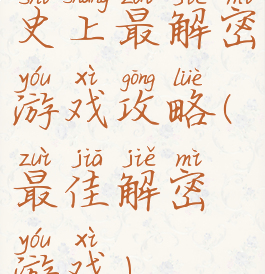 shǐ shàng zuì jiě mì
史上最解密
yóu xì gōng lüè
游戏攻略(
zuì jiā jiě mì
最佳解密
yóu xì
游戏)